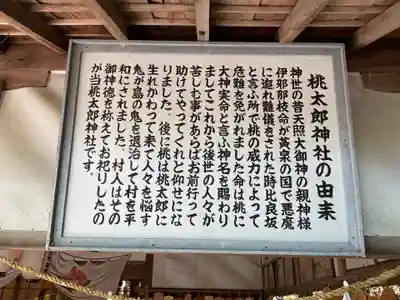 桃太郎神社の由来
神世の昔天照大御神の親神様
伊邪那岐命が黄泉の国で悪魔
に追れ難儀をされた時比良坂
と言ふ所で桃の威力によって
危難を免がれました命は桃に
大神実命と言ふ神名を賜わり
ましてこれから後世の人々が
苦しむ事があらばお前行って
助けてやってくれと仰せにな
りました。後に桃は桃太郎に
生れかわって来て人々を悩す
鬼が島の鬼を退治して村を平
和にされました。村人はその
御神徳を称えてお祀りしたの
が当桃太郎神社です。